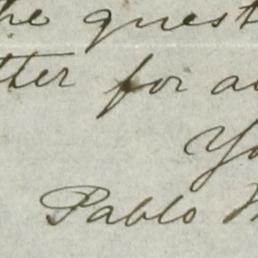 he quest
tter for a
Yo
Pablo